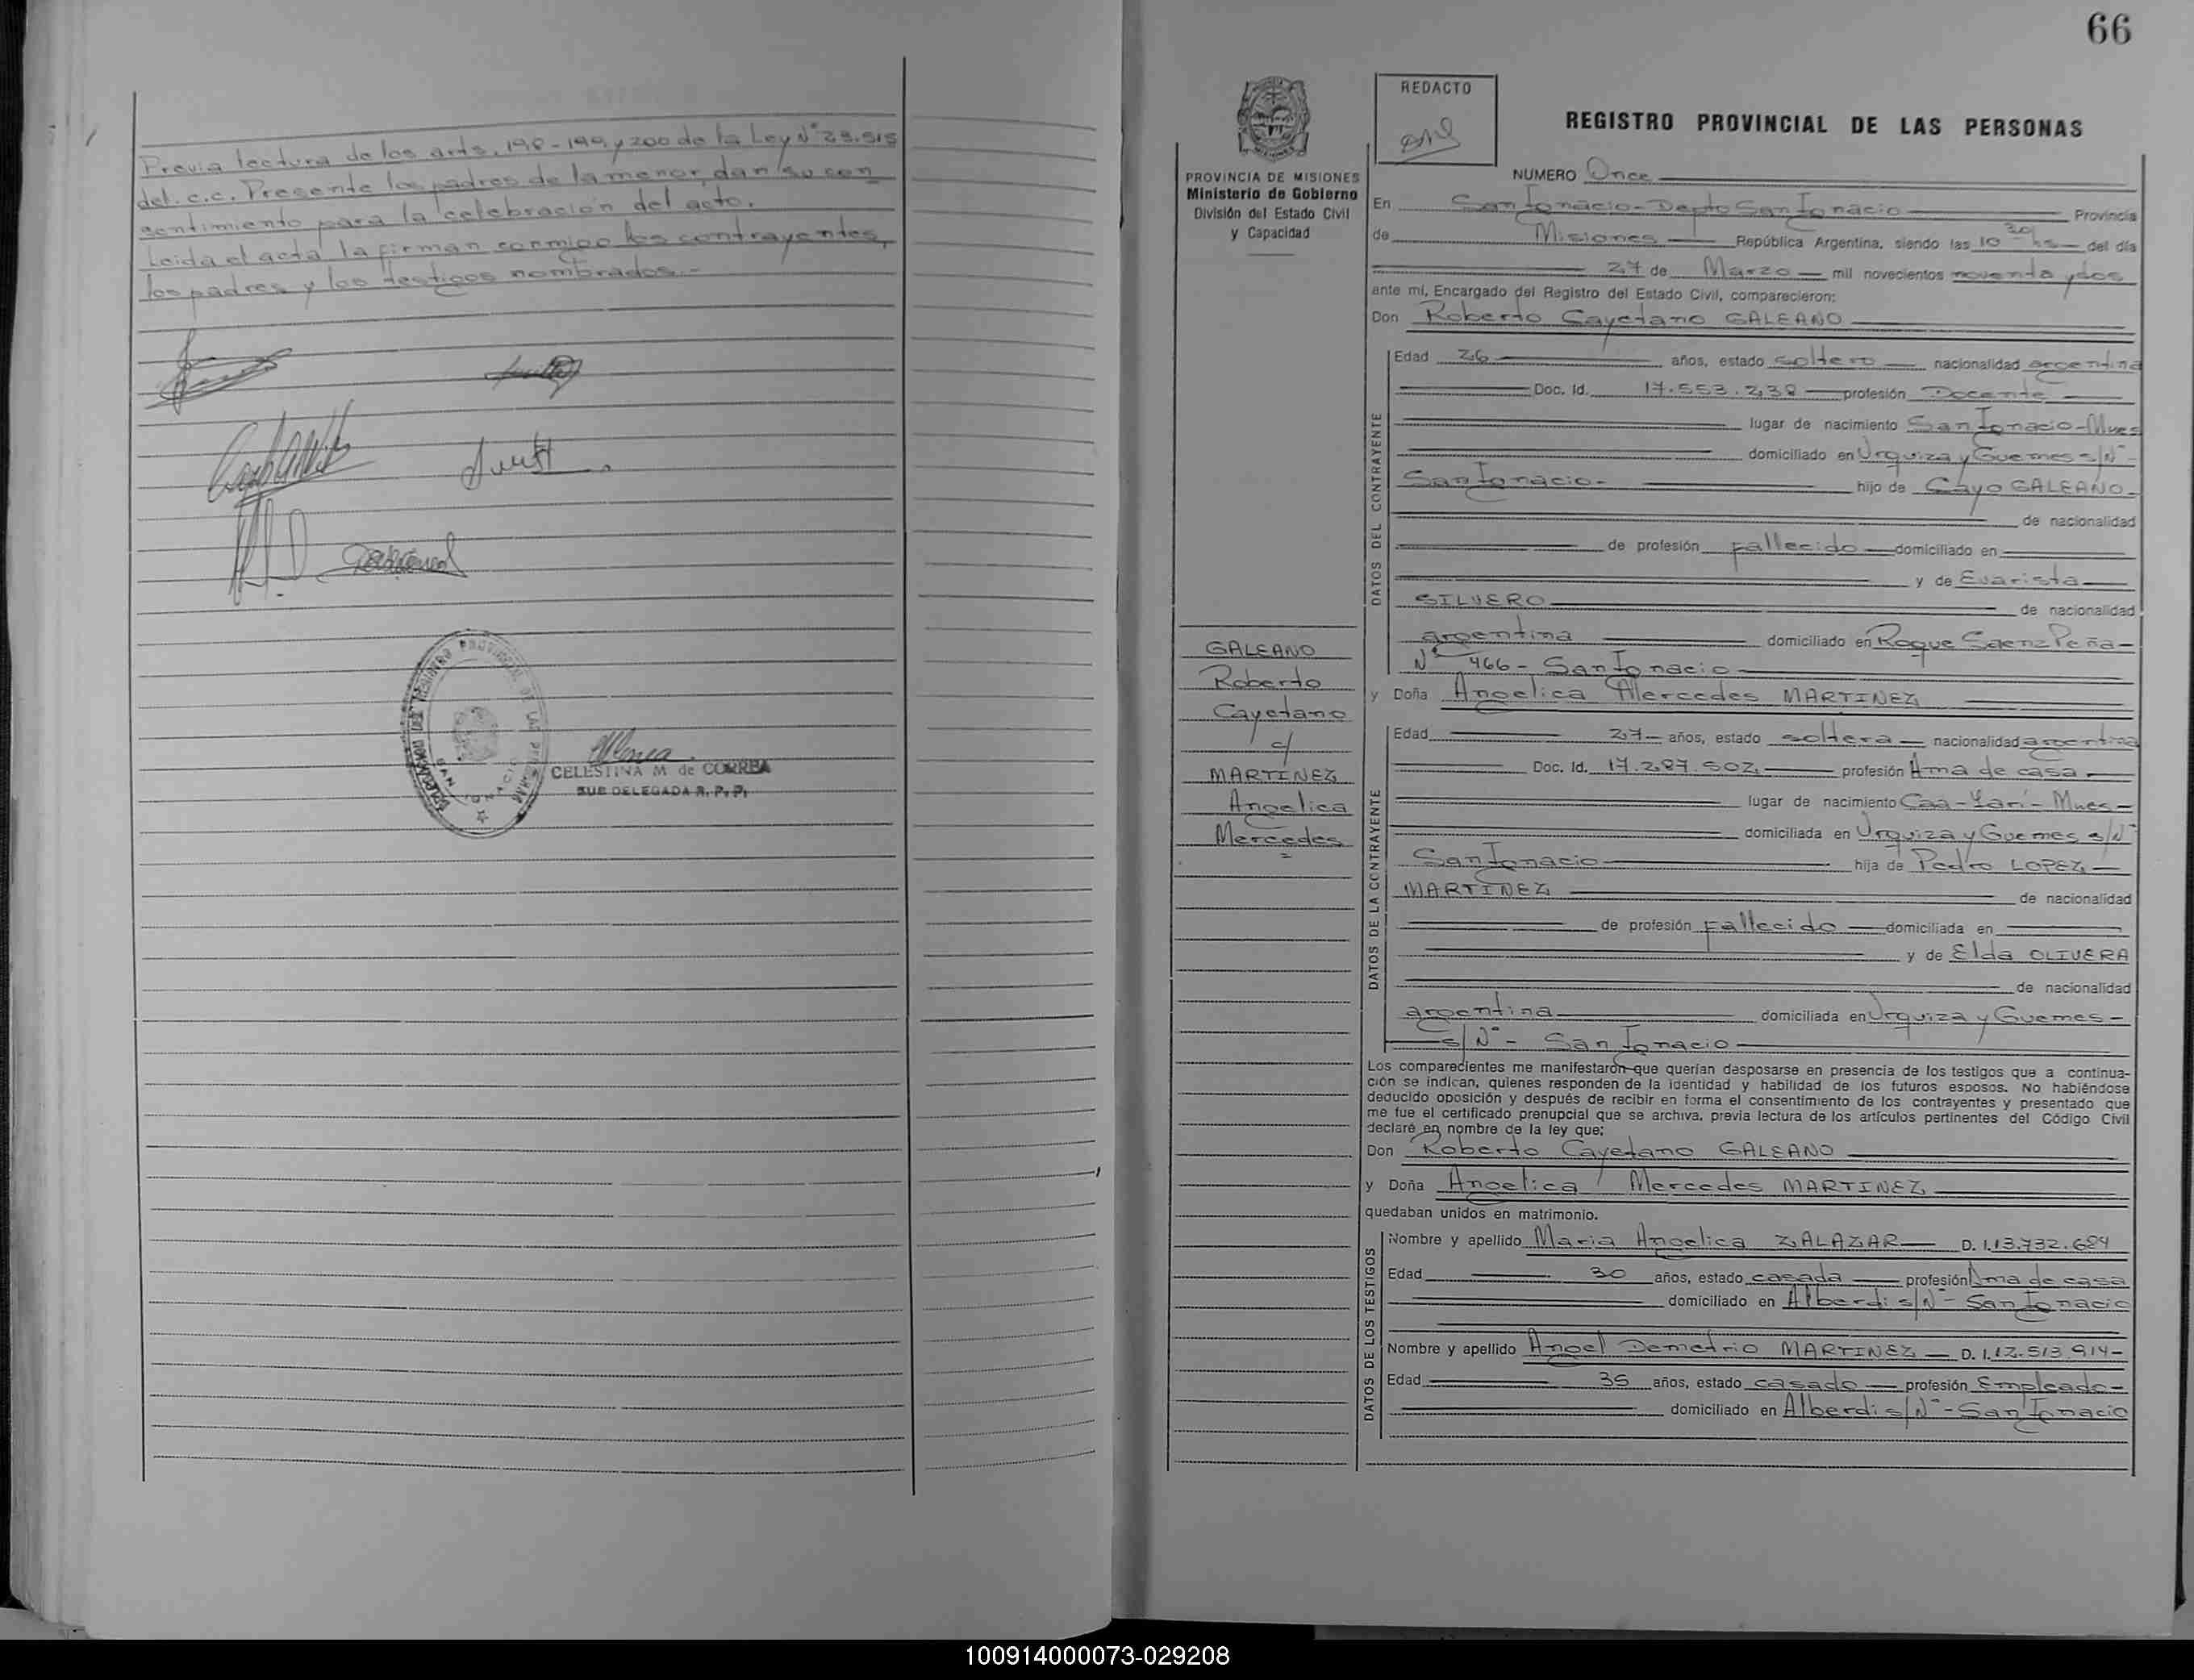 Previa lectura de los arts. 198-199 y 200 de la Ley N° 23.515
del. c.c. Presente los padres de la menor, dan su con
sentimiento para la celebración del acto.
Leida el acta la firman conmigo los contrayentes,
los padres y los testigos nombrados.-
CELESTINA M de CORREA
SUB DELEGADA R. P. P.
66
REDACTO
REGISTRO PROVINCIAL DE LAS PERSONAS
PROVINCIA DE MISIONES
Ministerio de Gobierno
División del Estado Civil
y Capacidad
NUMERO Once
En San Ignacio-Depto San Ignacio Provincia
de Misiones República Argentina, siendo las 10 30 hs del día
27 de Marzo mil novecientos noventa y dos
ante mí, Encargado del Registro del Estado Civil, comparecieron:
Don Roberto Cayetano GALEANO
DATOS DEL CONTRAYENTE
Edad 26 años, estado soltero nacionalidad argentina
Doc. Id. 17.553.238 profesión Docente
lugar de nacimiento San Ignacio-Mnes
domiciliado en Urquiza y Guemes s/N°-
San Ignacio- hijo de Cayo GALEANO-
de nacionalidad
de profesión fallecido domiciliado en
y de Evarista
SILVERO de nacionalidad
argentina domiciliado en Roque Saenz Peña-
N° 466- San Ignacio
y Doña Angelica Mercedes MARTINEZ
GALEANO
Roberto
Cayetano
c/
MARTINEZ
Angelica
Mercedes
=
DATOS DE LA CONTRAYENTE
Edad 27 años, estado soltera nacionalidad argentina
Doc. Id. 17.287.502 profesión Ama de casa
lugar de nacimiento Caa-Yarí- Mnes-
domiciliada en Urquiza y Guemes s/N°
San Ignacio hija de Pedro LOPEZ
MARTINEZ de nacionalidad
de profesión fallecido domiciliada en
y de Elda OLIVERA
de nacionalidad
argentina domiciliada en Urquiza y Guemes-
s/N°- San Ignacio
Los comparecientes me manifestarón que querían desposarse en presencia de los testigos que a continua-
ción se indican, quienes responden de la identidad y habilidad de los futuros esposos. No habiéndose
deducido oposición y después de recibir en forma el consentimiento de los contrayentes y presentado que
me fue el certificado prenupcial que se archiva, previa lectura de los artículos pertinentes del Código Civil
declaré en nombre de la ley que:
Don Roberto Cayetano GALEANO
y Doña Angelica Mercedes MARTINEZ
quedaban unidos en matrimonio.
DATOS DE LOS TESTIGOS
Nombre y apellido Maria Angelica ZALAZAR D. I. 13.732.684
Edad 30 años, estado casada profesión Ama de casa
domiciliado en Alberdi s/N°- San Ignacio
Nombre y apellido Angel Demetrio MARTINEZ D. I. 12.513.914-
Edad 35 años, estado casado profesión Empleado-
domiciliado en Alberdi s/N°-San Ignacio
100914000073-029208